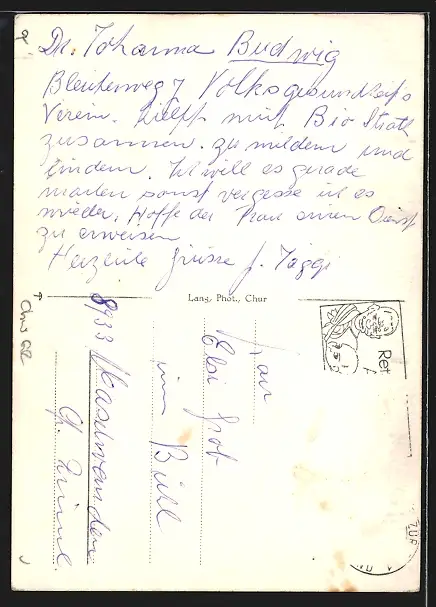 Dr. Johanna Budwig
Bleicherweg 7 Volksgesundheits
Verein. hilft mit Bio Strath
zusammen. zu mildern und
lindern. Ich will es gerade
machen sonst vergesse ich es
wieder. Hoffe der Frau einen Dienst
zu erweisen
Herzliche Grüsse f. Jäggi
Lang, Phot., Chur
Frau
Elsi Grob
im Bühl
8933 Maschwanden
Ret
ZÜR